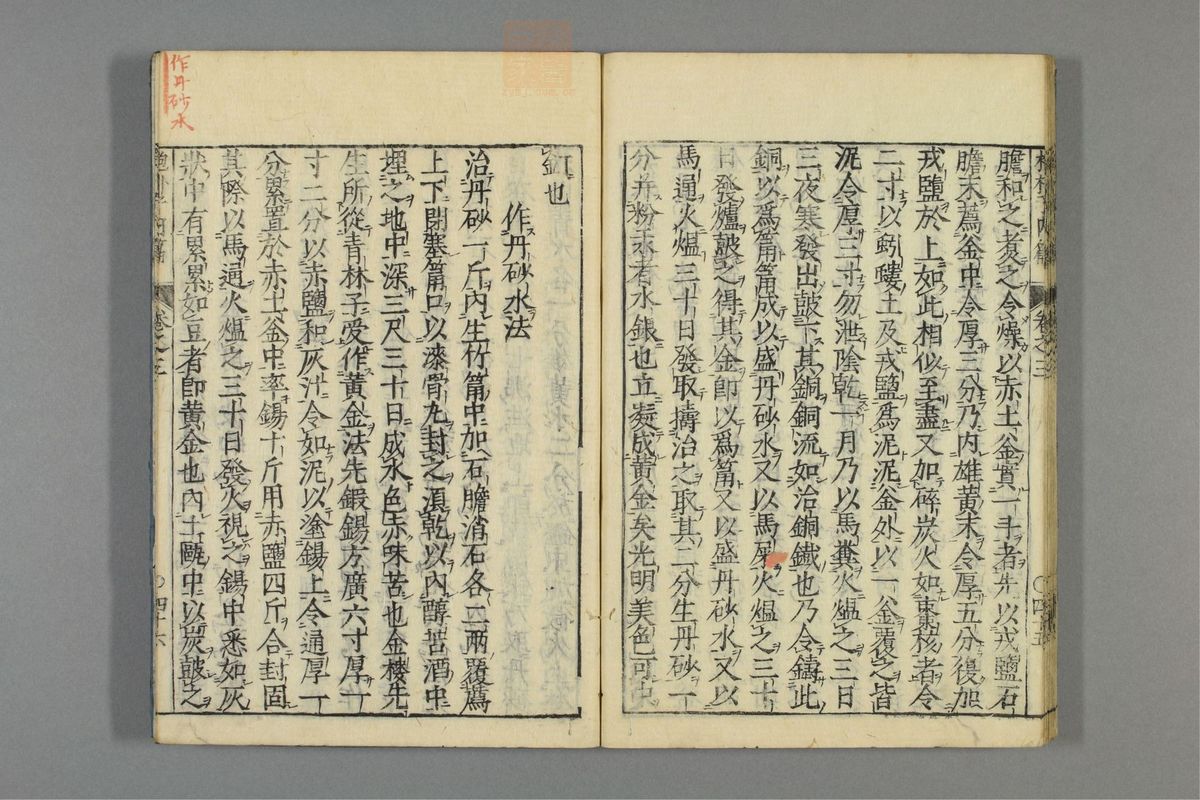 膽和之煮之令燥以赤土釜實一斗者先以戎鹽石
膽末薦釜中令厚三分乃內雄黃末令厚五分復加
戎鹽於上如此相似至盡又加碎炭火如棗核者令
二寸以蚓螻土及戎鹽爲泥泥釜外以一釜覆之皆
泥令厚三寸勿泄陰乾一月乃以馬糞火熅之三日
三夜寒發出鼓下其銅銅流如冶銅鐵也乃令鑄此
銅以爲筩筩成以盛丹砂水又以馬屎火熅之三十
日發爐鼓之得其金即以爲筩又以盛丹砂水又以
馬通火熅三十日發取擣治之取其二分生丹砂一
分幷粉汞者水銀也立凝成黃金矣光明美色可中
釘也
作丹砂水法
治丹砂一斤內生竹筩中加石膽消石各二兩覆薦
上下閉塞筩口以漆骨丸封之湏乾以內醇苦酒中
埋之地中深三尺三十日成水色赤味苦也金樓先
生所從青林子受作黃金法先鍛錫方廣六寸厚一
寸二分以赤鹽和灰汁令如泥以塗錫上令通厚一
分累置於赤土釜中率錫十斤用赤鹽四斤合封固
其際以馬通火熅之三十日發火視之錫中悉如灰
狀中有累累如豆者即黃金也內土甌中以炭鼓之
作丹砂水
卷之三
四十五
卷之三
四十六